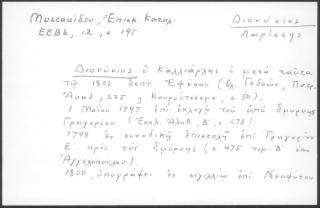 Μυστακίδου, Ἐπισκ. Κατάλ.
ΕΕΒΣ, 12, σ. 195
Διονύσιος
Λαρίσσης
Διονύσιος ὁ Καλλιάρχης ὁ μετὰ ταῦτα
τῷ 1803 Σεπτ. Ἐφέσου (βλ. Γεδεών, Πατρ.
225 σ. 50).
1 Μαΐου 1797 ἐπὶ ἐκλογῇ τοῦ ἀπὸ Σμύρνης
Γρηγορίου (Ἐκκλ. Ἀλήθ., Β΄, σ. 278).
1798 ἐν συνοδικῇ ἐπιστολῇ ἐπὶ Γρηγορίου
Ε΄ πρὸς τὸν Σμύρνης (σ. 475 τομ. Β΄ ὑπὸ
Ἀγγελοπούλου).
1800, ὑπογράφει ἐν σιγιλλίῳ ἐπὶ Νεοφύτου